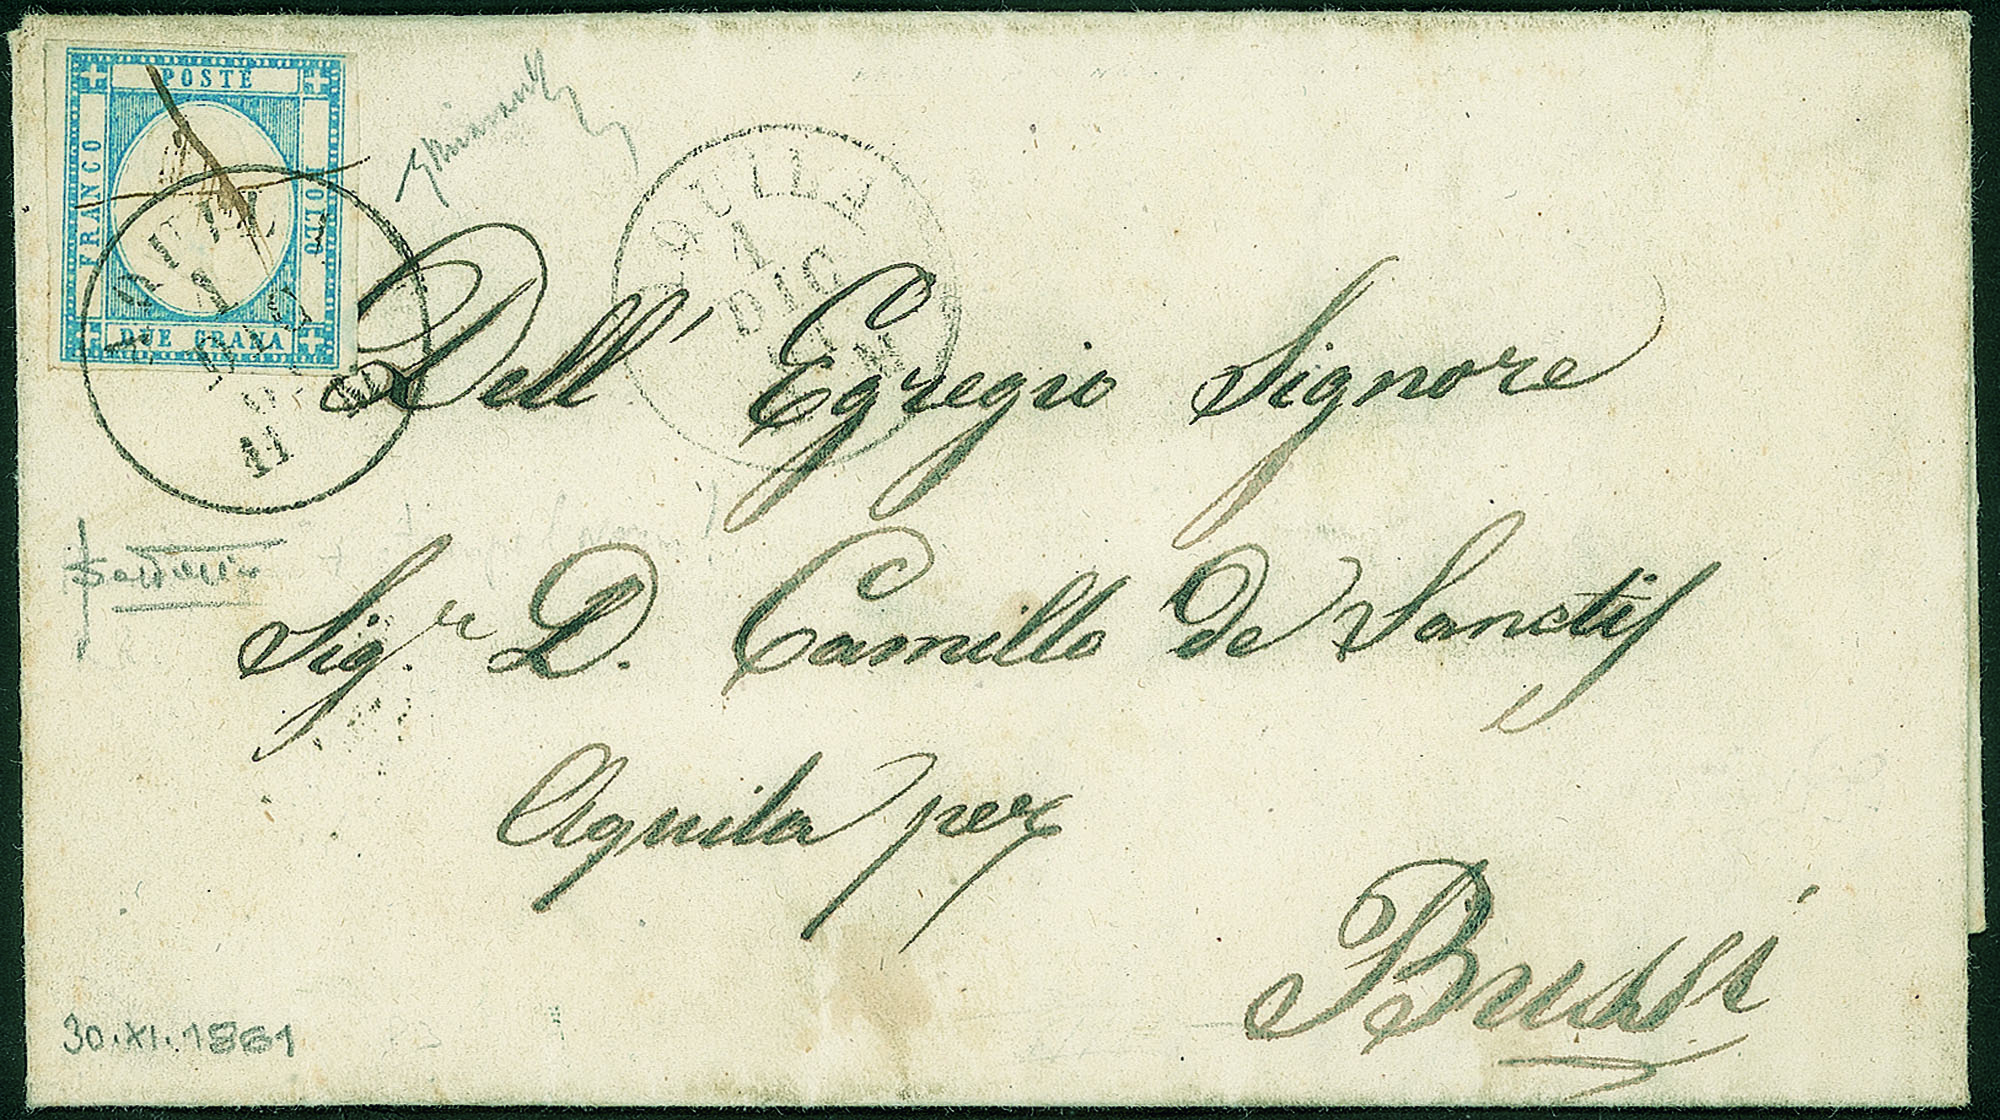 POSTE
FRANCO
BOLLO
DUE GRANA
AQUILA
1
DIC
11
AQUILA
1
DIC
Dell' Egregio Signore
Sig.r D. Camillo de Sanctis
Aquila per
Bussi
30.XI.1861